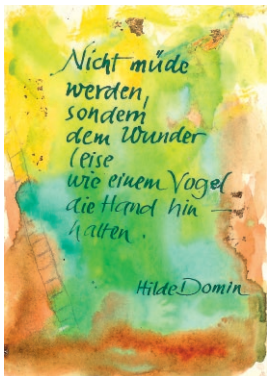 Nicht müde
werden,
sondern
dem Wunder
leise
wie einem Vogel
die Hand hin
halten.
Hilde Domin